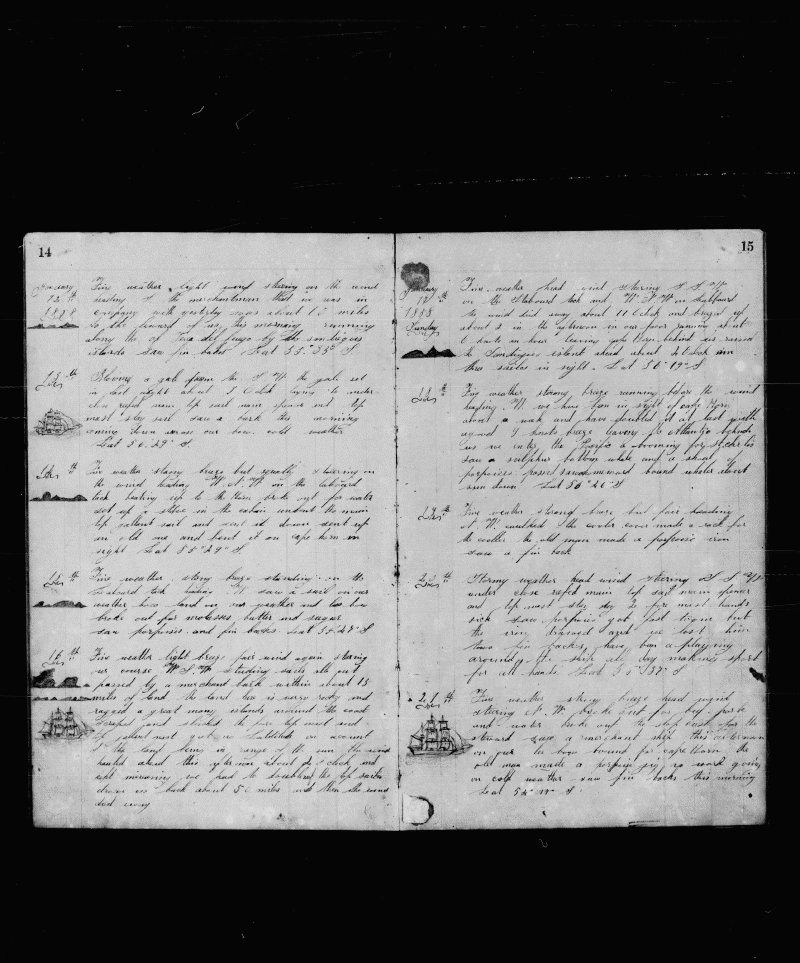 14
January Fine weather light wind stering on the wind
12th heading S. the merchantman that we was in
1888 company with yesterday was about 15 miles
to the leward of us this morning running
along the of Tera del fuego by the san diegoes
islands saw fin backs Lat 55° 35° S
13th Blowing a gale from the S W the gale set
in last night about 7 Oclock laying to under
close refed main top sail main spencer and top
mast stay sail saw a bark this morning
coming down across our bow cold weather
Lat 56° 29° S
14th Fine weather strong breze but squally stearing on
the wind heading W N. W on the labourd
tack beating up to the Horn broke out for water
set up a stove in the cabin unbent the main
top gallent sail and sent it down sent up
an old one and bent it on cape horn in
sight Lat 55° 29° S
15th Fine weather strong breze standing on the
labourd tack saw a sail on our
weather bow land on our weather and lee bow
broke out for molasses, butter and sugar
saw porpoises and fin backs. Lat 55° 47° S
16th Fine weather light breze fair wind again stering
our course W S. W studing sails all out
passed by a merchant bark within about 15
miles of land the land hear is verry rocky and
raged a great many islands around the coast
Scraped and slushed the fore top mast and
gallent mast got no Latitude on account
of the land being in range of the sun the wind
hauled ahead this afternoon about Oclock and
kept increasing we had to the top sailes
drove us back about 50 miles and then the wind
died away
15
January Fine weather head wind stering S. S. W
17th on the Stabourd tack and W. N W on Labourd
1888 the wind died away about 11 Oclock and brezed up
Tuesday about 2 in the afternoon in our favor running about
6 knots an hour leaving cape Horn behind us raised
the Sandiegoes islent ahead about 4 Oclock
three sailes in sight. Lat 56° 19° S
18th Fine weather strong breze running before the wind
heading W we have ben in sight of cape Horn
about a week and have doubled it at last with
against 9 knots breze leaving the Atlantic behind
us we enter the Pacific a booming for
saw a sulphur bottom whale and a shoal of
porpoises passed homeward bound whaler dident
run down Lat 56° 26° S
19th Fine weather strong breze but fair heading
N. W. the cooler cover made a rack for
the cooller the old man made a porpoise iron
saw a fin back
20th Stormy weather head wind stering S S W
under close refed main top sail main spencer
and top mast stay sail fore mast hands
sick saw porpoises got fast to one but
the iron drawed and we lost him
two fin backs, have ben a playing
around the ship all day making sport
for all hands Lat 55° 37° S
21th Fine weather strong breze head wind
stering N. W. broke out for beef, pork
and water broke out the slop cask for the
steward saw a merchant ship this afternoon
on our lee bow bound for cape horn the
old man made a porpoise jig no work going
on cold weather saw fin backs this morning
Lat 54° S